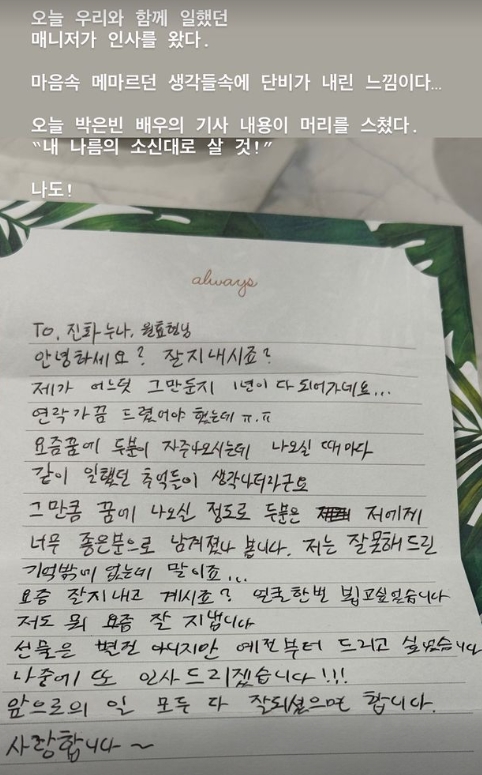 오늘 우리와 함께 일했던
매니저가 인사를 왔다.
마음속 메마르던 생각들속에 단비가 내린 느낌이다...
오늘 박은빈 배우의 기사 내용이 머리를 스쳤다.
“내 나름의 소신대로 살 것!”
나도!
always
To. 진화누나,
안녕하세요? 잘지내시죠?
제가 어느덧 그만둔지 1년이 다 되어가네요...
연락가끔 드렸어야 했는데 ㅠ.ㅠ
요즘꿈에 두분이 자주나오시는데 나오실 때마다
같이 일했던 추억들이 생각나더라구요
그만큼 꿈에 나오실 정도로 두분은 저에게
너무 좋은분으로 남겨졌나 봅니다. 저는 잘못해드린
기억밖에 없는데 말이죠...
요즘 잘지내고 계시죠? 얼굴한번 뵙고싶었습니다
저도 뭐 요즘 잘 지냅니다
선물은 별건 아니지만 예전부터 드리고 싶었습니다
나중에 또 인사드리겠습니다!!!
앞으로의 일 모두 다 잘되셨으면 합니다.
사랑합니다~